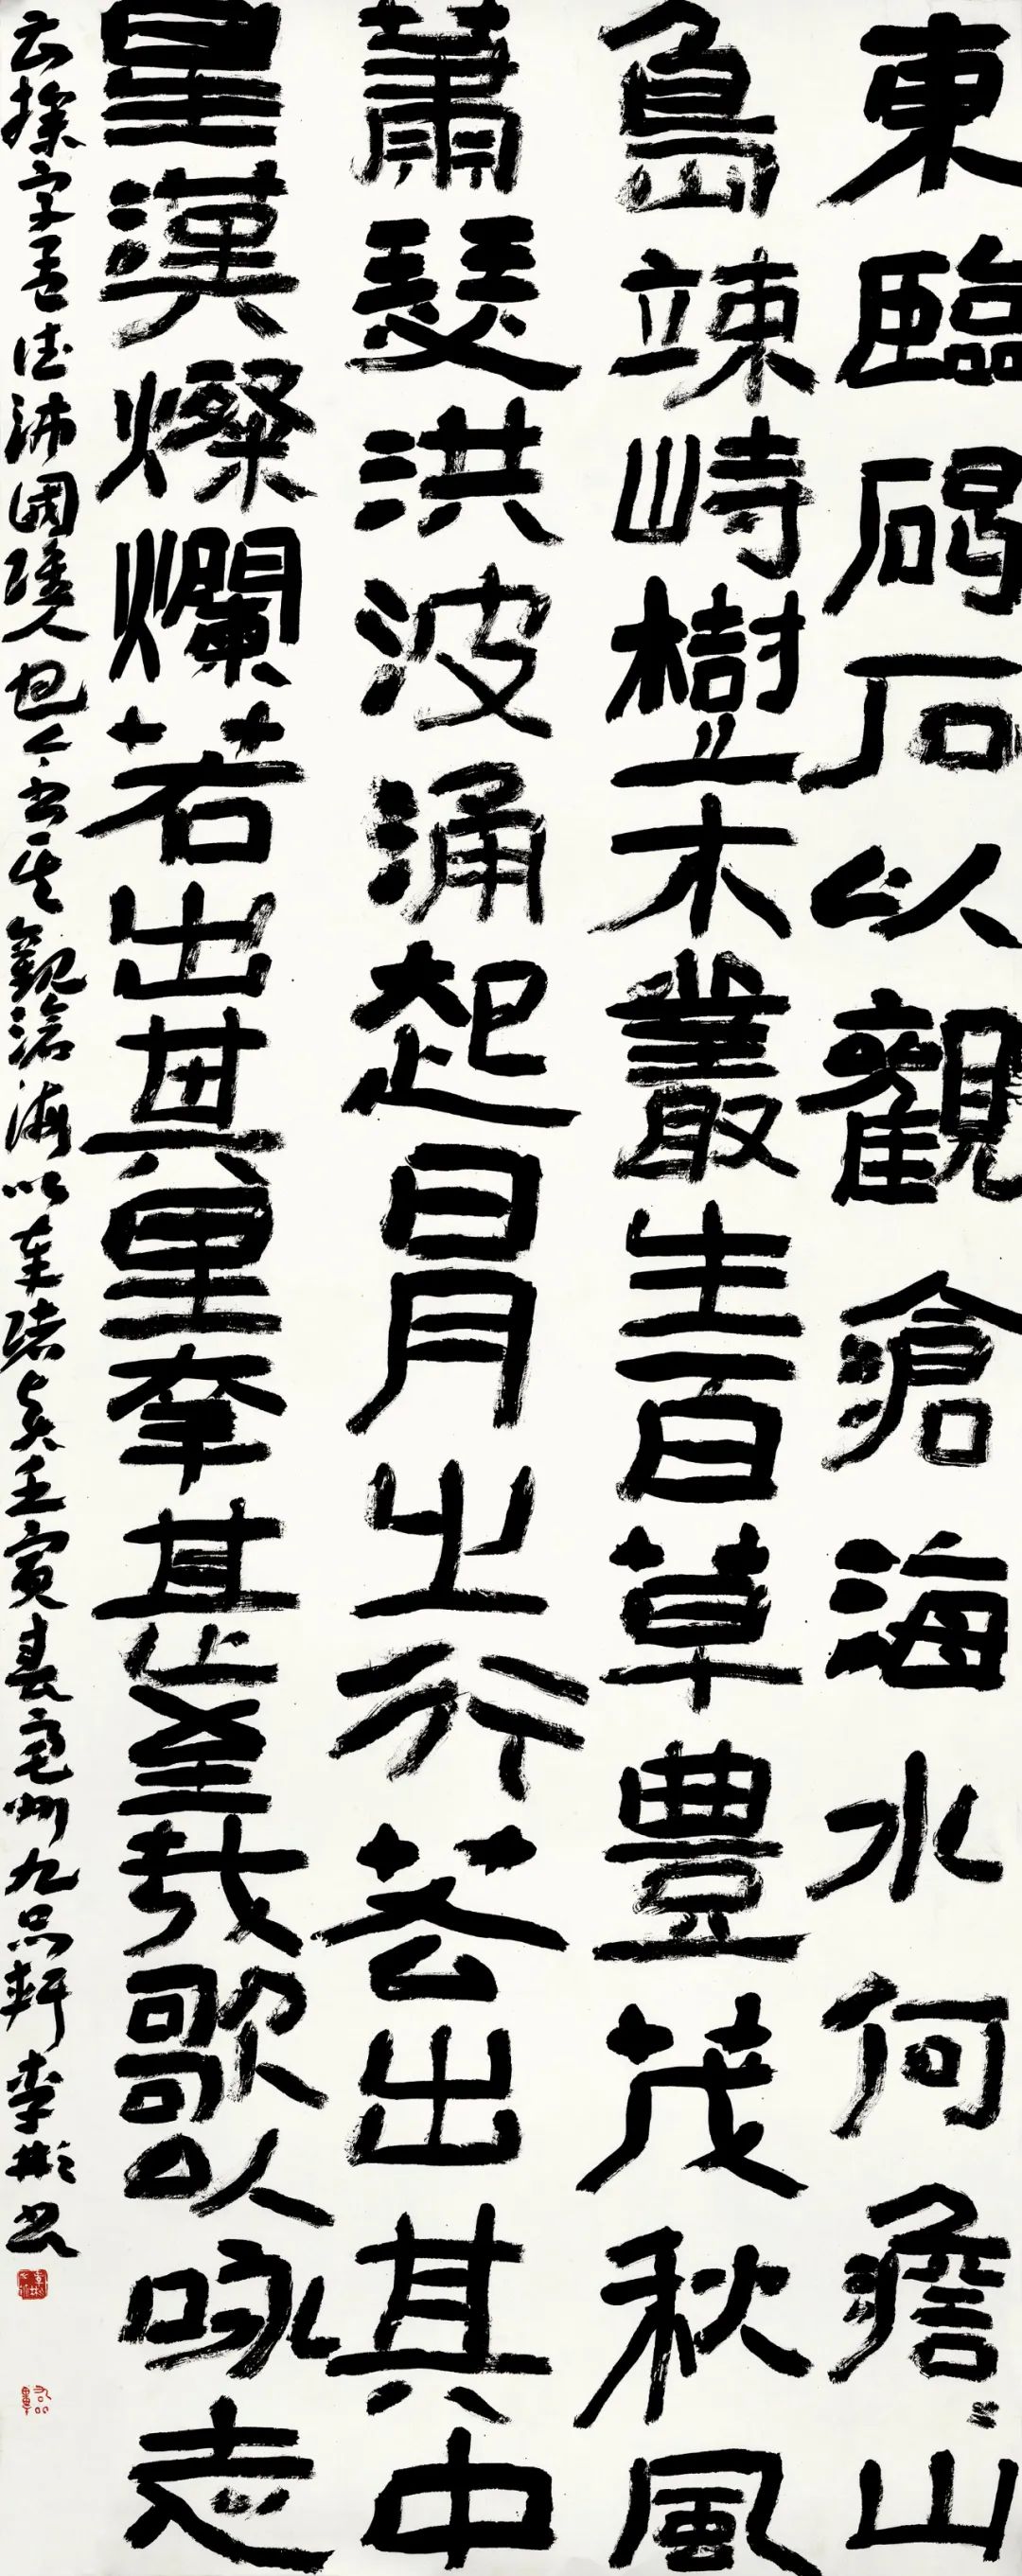 東臨碣石以觀滄海水何澹〻山
島竦峙樹木叢生百草豐茂秋風
蕭瑟洪波涌起日月之行若出其中
星漢燦爛若出其里幸甚至哉歌以咏志
操字孟德沛國譙人也今書其觀滄海以奉諸壬寅春亳州九品軒李彬書